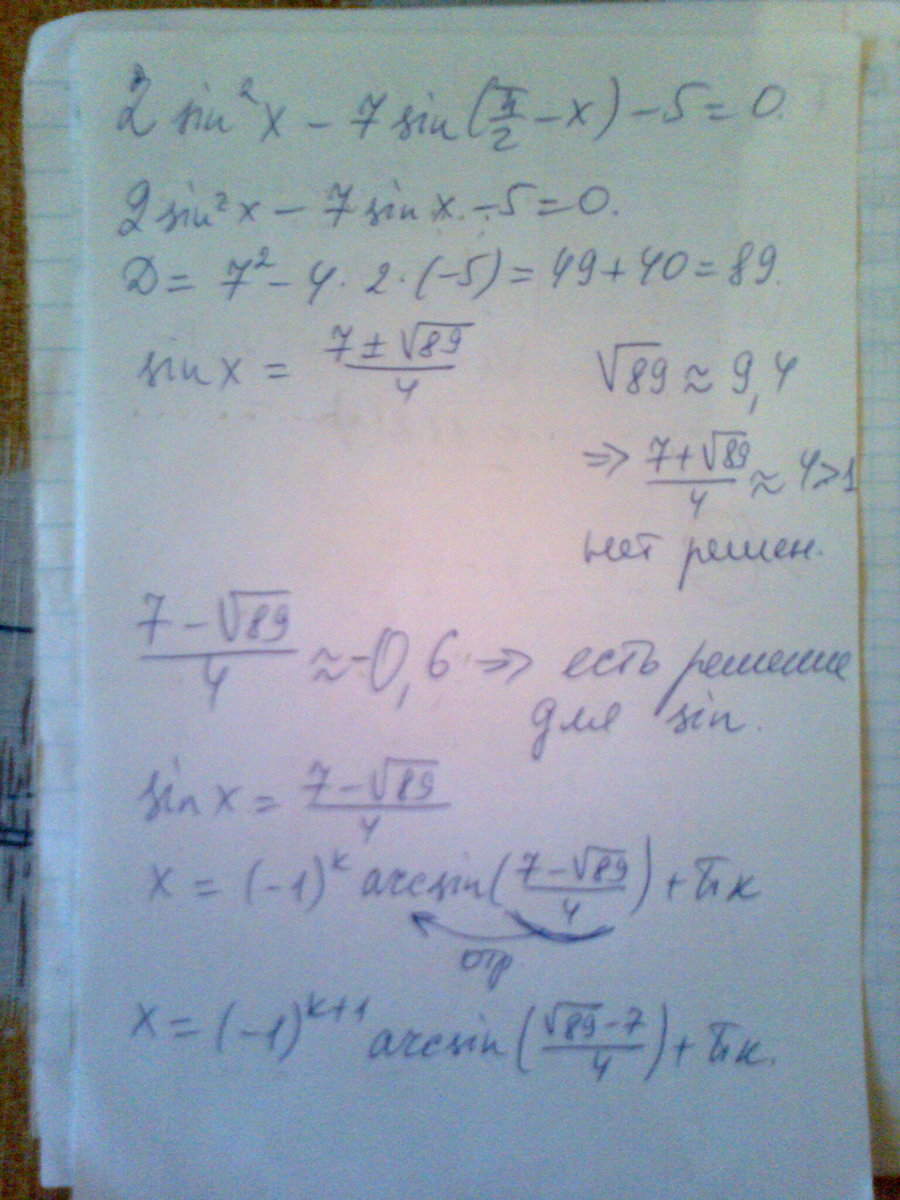 2 sin² x − 7 sin(π/2 − x) − 5 = 0.
2 sin² x − 7 sin x − 5 = 0.
D = 7² − 4 · 2 · (−5) = 49 + 40 = 89.
sin x = (7 ± √89)/4
√89 ≈ 9,4
⇒ (7 + √89)/4 ≈ 4 > 1
нет решен.
(7 − √89)/4 ≈ −0,6 ⇒ есть решение
для sin.
sin x = (7 − √89)/4
x = (−1)^k arcsin((7 − √89)/4) + πk
отр
x = (−1)^(k+1) arcsin((√89 − 7)/4) + πk.